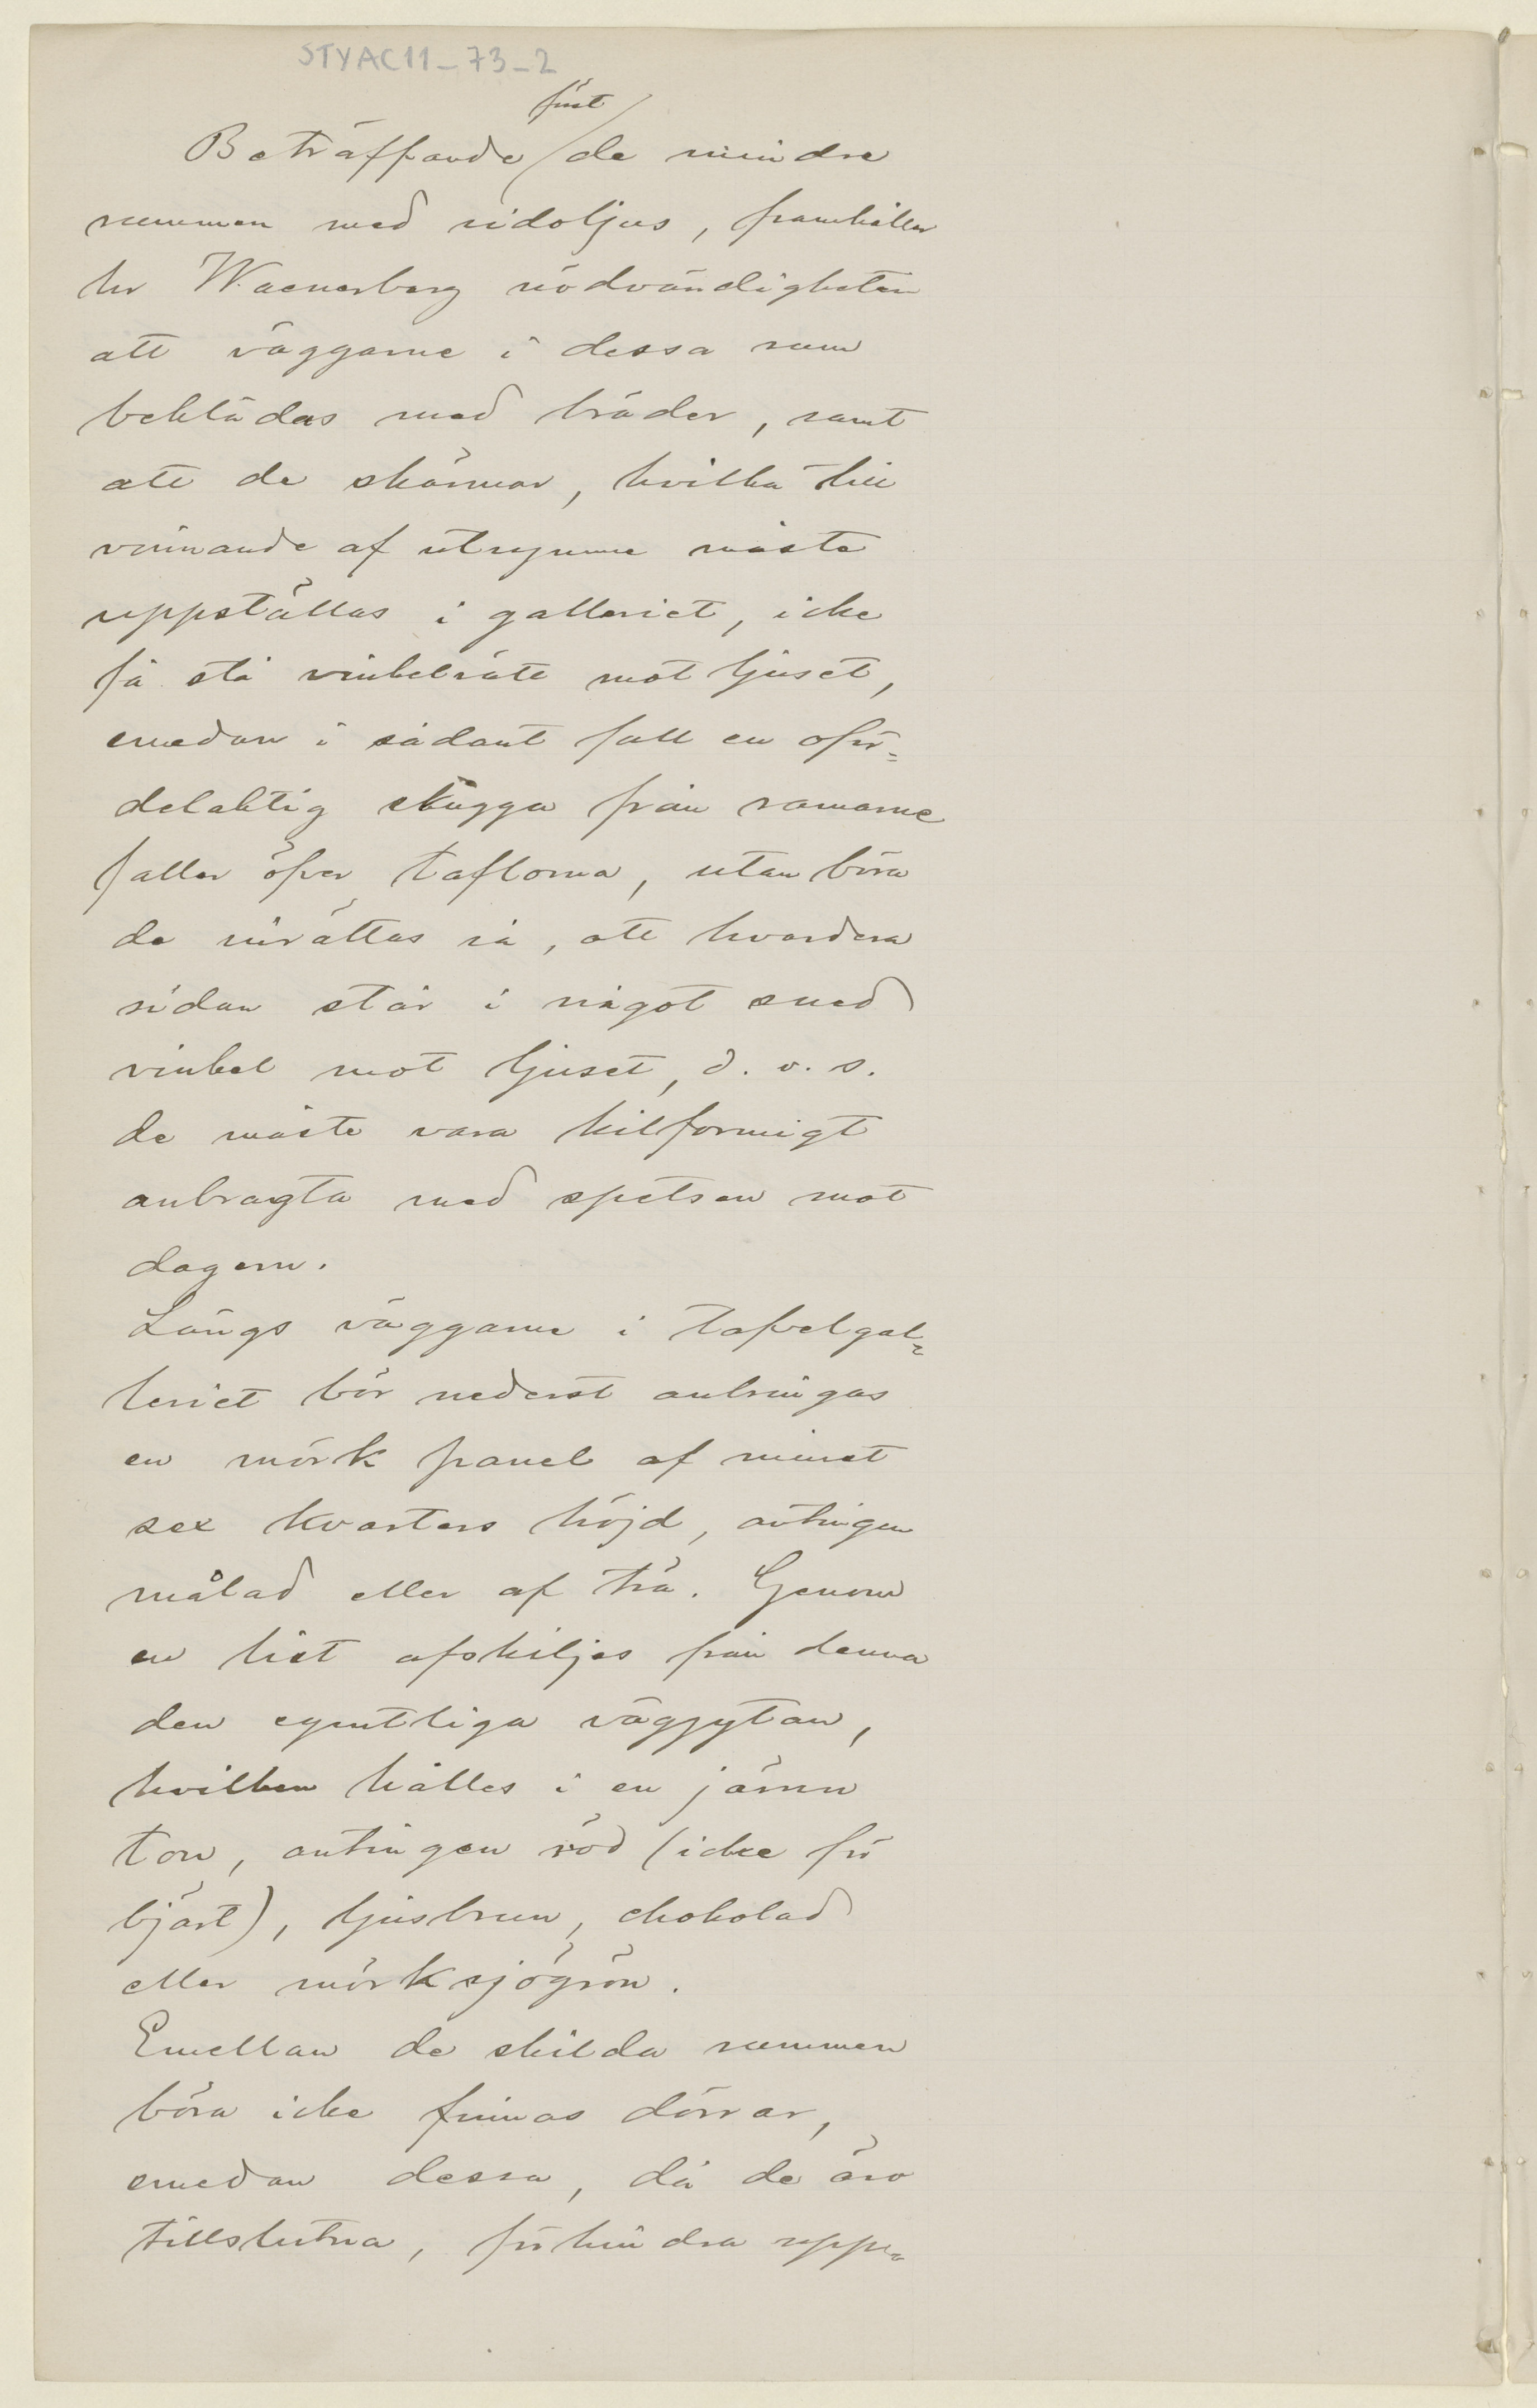 STYAC11_73_2
först
Beträffande de mindre
rummen med sidoljus, framhåller
hr Waenerberg nödvändigheten
att väggarne i dessa rum
beklädas med bräder, samt
att de skärmar, hvilka till
vinnande af utrymme måste
uppställas i galleriet, icke
få stå vinkelrätt mot ljuset,
emedan i sådant fall en oför-
delaktig skugga från ramarne
faller öfver taflorna, utan böra
de inrättas så, att hvardera
sidan står i något sned
vinkel mot ljuset, d. v. s.
de måste vara kilformigt
anbragta med spetsen mot
dagern.
Längs väggarne i tafvelgal-
leriet bör nederst anbringas
en mörk panel af minst
sex kvarters höjd, antingen
målad eller af trä. Genom
en list afskiljes från denna
den egentliga väggytan,
hvilken hålles i en jämn
ton, antingen röd (icke för
bjärt), ljusbrun, chokolad
eller mörk sjögrön.
Emellan de skilda rummen
böra icke finnas dörrar,
emedan dessa, då de äro
tillslutna, förhindra uppe-